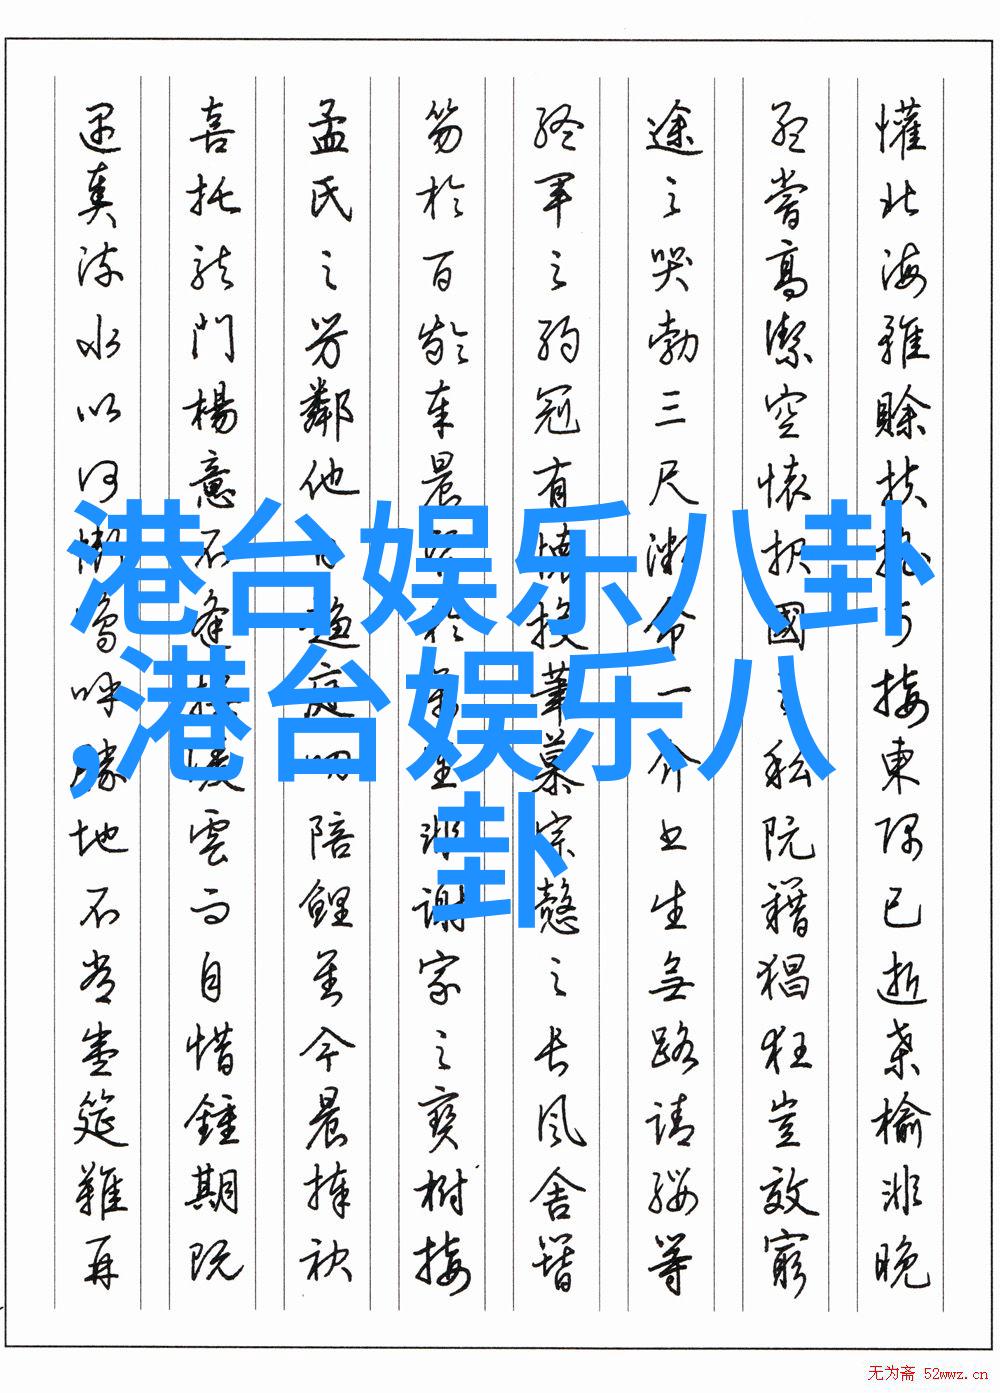 懽北海雖賒扶搖可接東隅已逝桑榆非晚
孟嘗高潔空懷報國之私阮籍猖狂豈效窮
途之哭勃三尺微命一介书生無路請纓等
終軍之弱冠有懷投筆慕宗慤之長風舍簪
笏於百齡奉晨昏於萬里非謝家之寶樹接
孟氏之芳鄰他日趨庭叨陪鯉對今晨捧袂
喜托龍門楊意不逢撫凌雲而自惜鍾期既
遇奏流水以何慚嗚呼勝地不常盛筵難再
港台娱乐八卦
,港台娱乐八
卦
无为斋 52wwz.cn